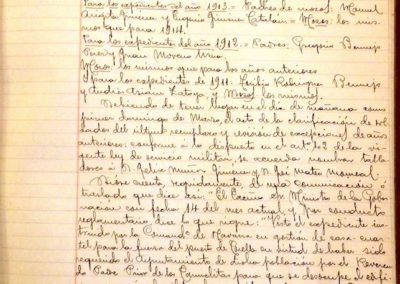 Para los expedientes del año 1913 = Padres de mozos: Manuel
Angulo Jimenez y Eugenio Jimeno Catalán = Mozos: los mis-
mos que para 1914.
Para los expedientes del año 1912 = Padres: Gregorio Bermejo
Perez y Juan Moreno
Mozos: los mismos que para los años anteriores
Y para los expedientes de 1911: Rodriguez Bermejo
y Andrés Zatoya, y Mozos los mismos.
Debiendo de tener lugar en el dia de mañana como
primer domingo de Marzo, el acto de la clasificación de sol-
dados del último reemplazo y revisión de excepciones de años
anteriores conforme a lo dispuesto en el artº de la vi-
gente ley de servicio militar, se acuerda nombrar talla-
dores á D. Felix Muñoz Jimeno y D. José Mateo
Dióse cuenta, seguidamente, de una comunicación ó
traslado que dice así: "El Excmo Sr Ministro de la Gober-
nación con fecha 14 del mes actual y por conducto
reglamentario dice lo que sigue: "Visto el expediente ins-
truido por la Comandª de Navarra en gestión de casa cuar-
tel para la fuerza del puesto de en virtud de haber sido
requerido el Ayuntamiento de dicha población por el Reveren-
do Padre Prior de los Carmelitas para que se desocupe el edifi-